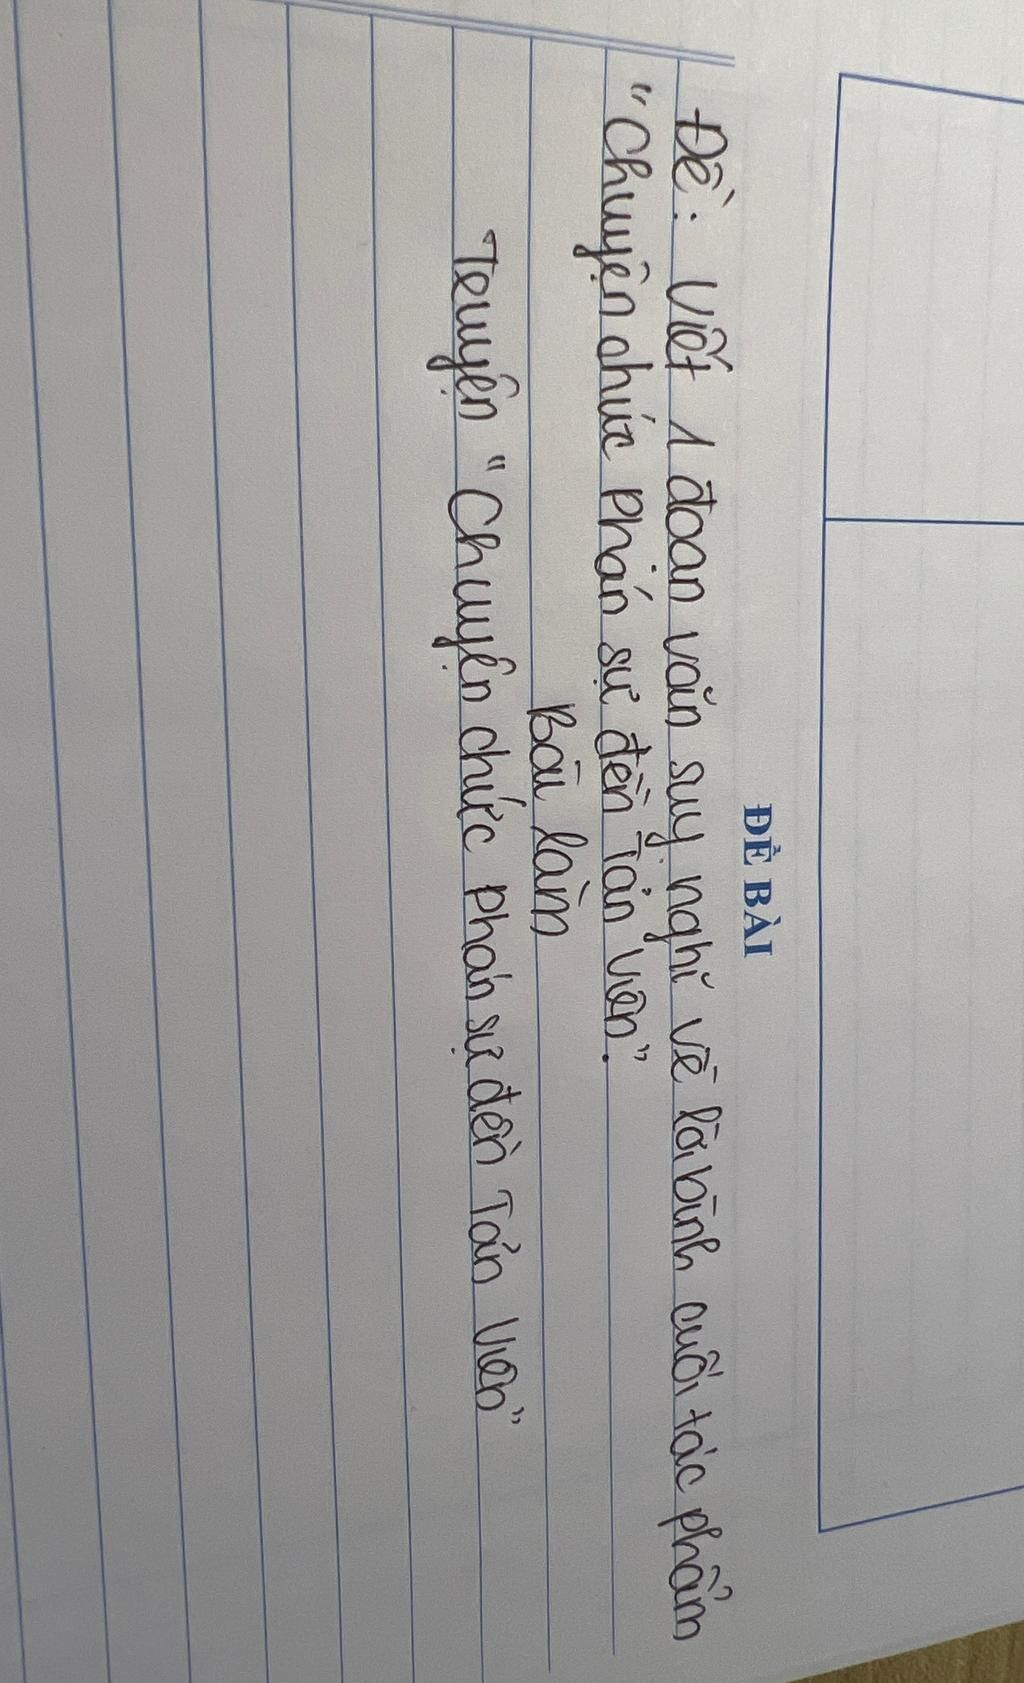 ĐỀ BÀI
Đề: Viết 1 đoan văn suy nghĩ về lời bình cuối tác phẩm
"Chuyện chức phán sự đền Tản Viên".
Bài làm
Truyện "Chuyện chức phán sự đền Tản Viên"